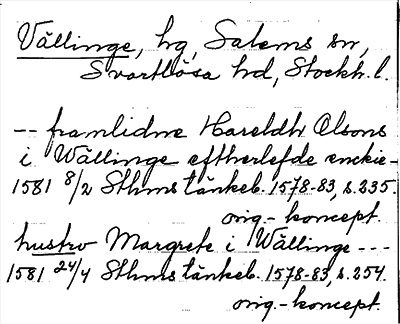 Vällinge, hg, Salems sn,
Svartlösa hd, Stockh. l.
-- framlidne Hareldh Olsons
i Wällinge eftherlefde enckie-
1581 8/2 Sthms tänkeb. 1578-83, s. 235.
orig.- koncept.
hustro Margrete i Wällinge ---
1581 24/4 Sthms tänkeb. 1578-83, s. 254.
orig.-koncept.